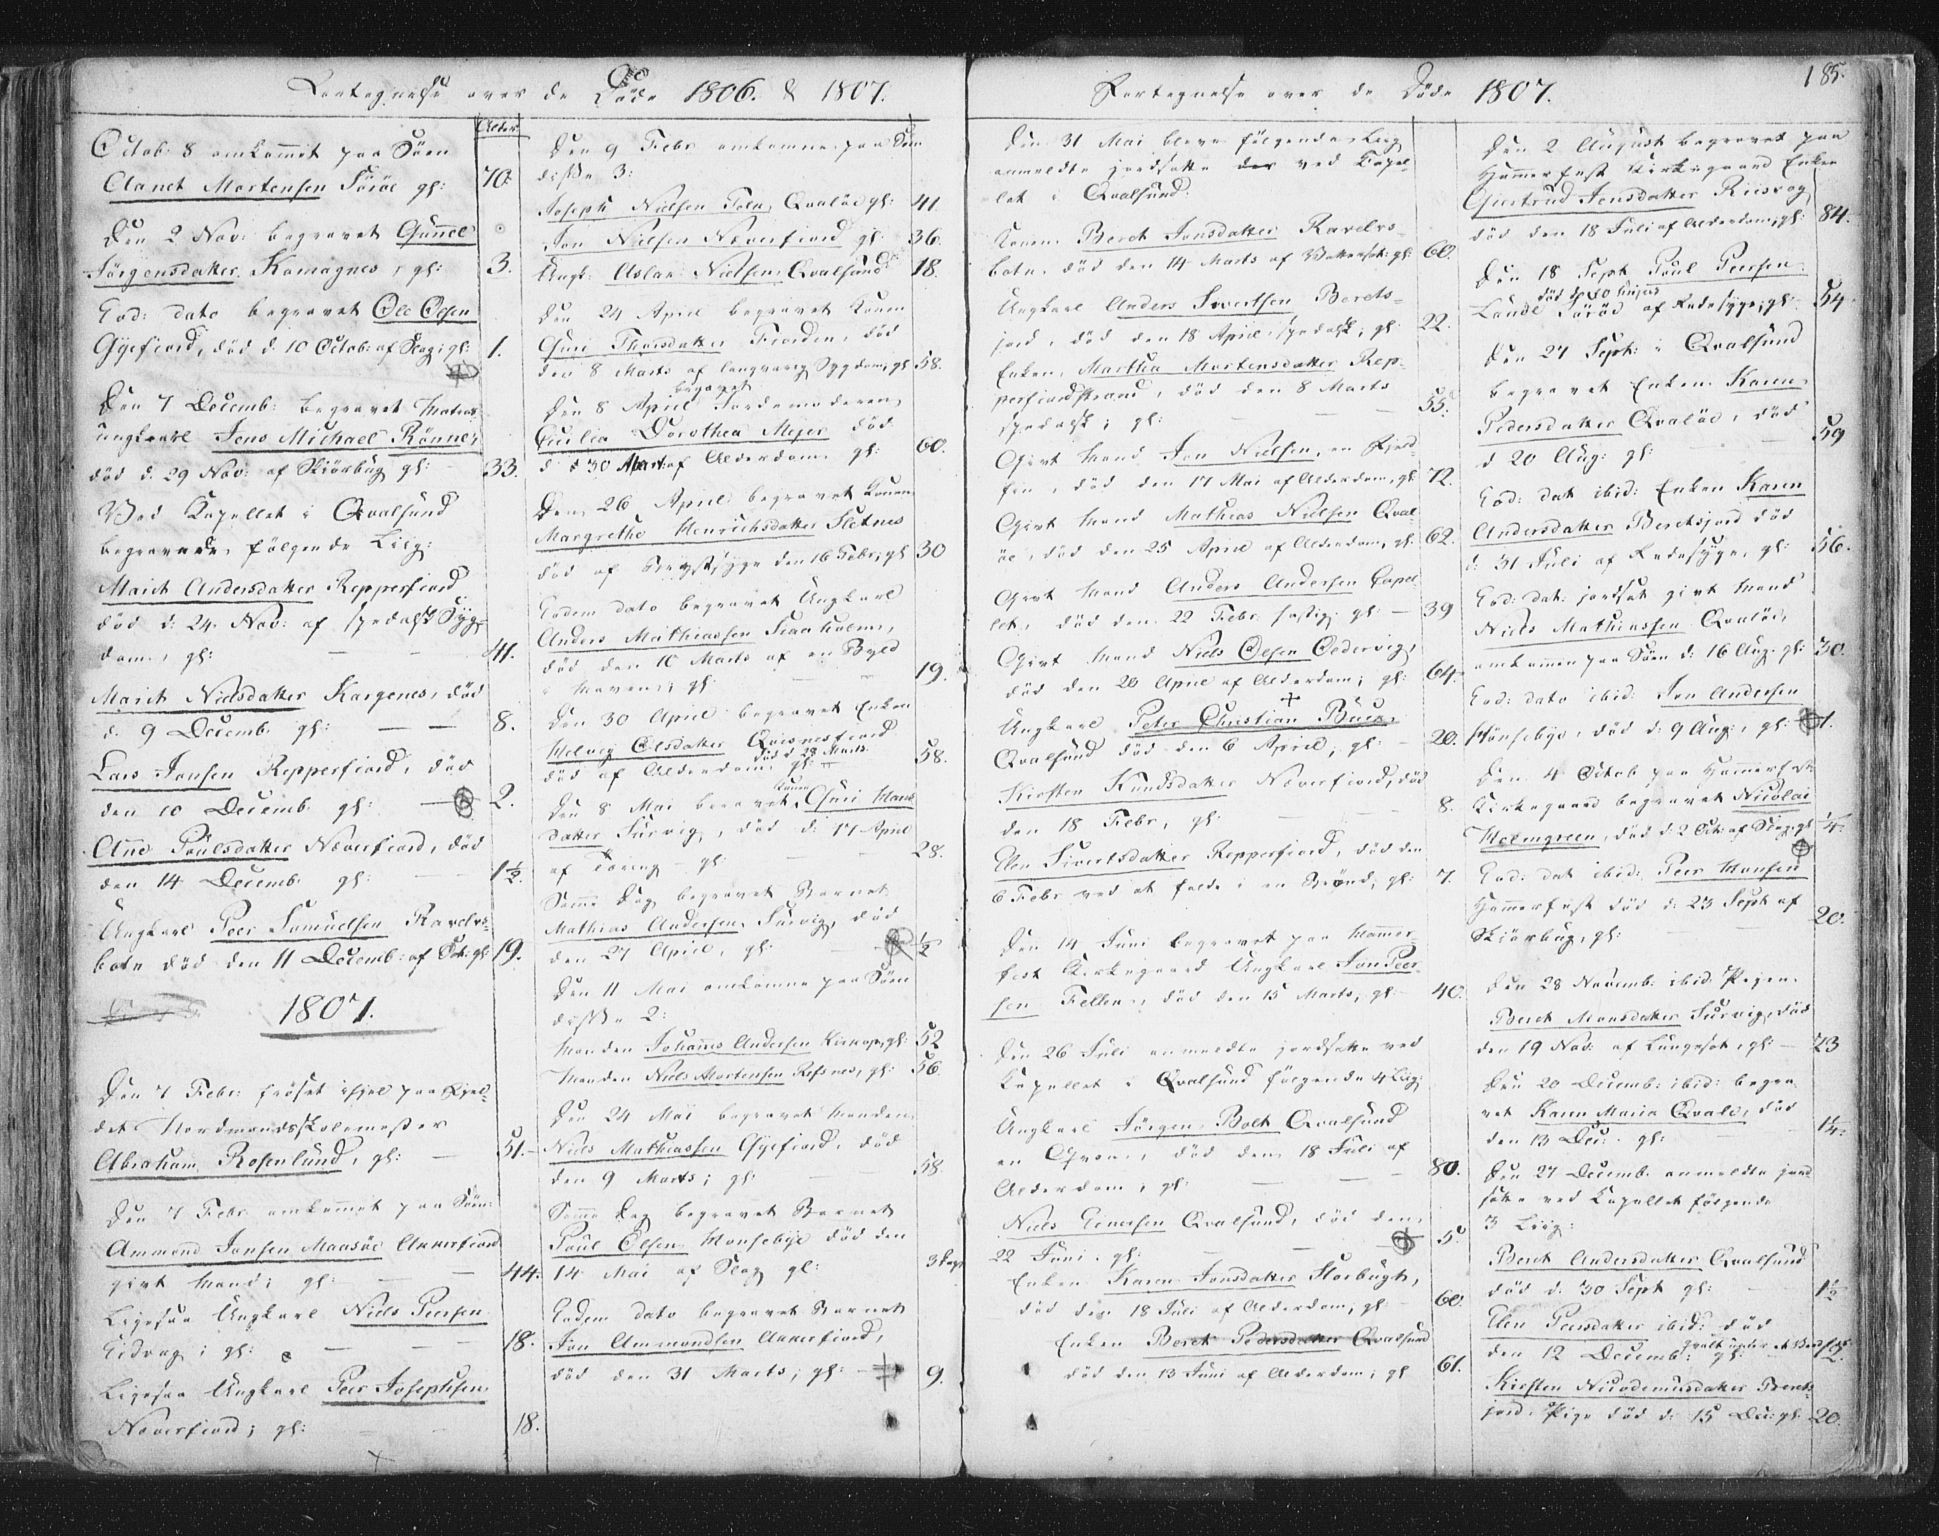 Fortegnelse over de Døde 1806. & 1807.
Alder
Octob: 8 omkommet paa Søen
Clanet Mortensen Sørøe gl: 70.
Den 2 Nov: begravet Gunnel
Jørgensdatter Kamagnes, gl: 3.
Eod: dato begravet Ole Olsen
Gyefiord, död d. 10 Octob: af Slag; gl: 1.
Den 7 Decemb: begravet
ungkarl Jens Michael Rönne,
död d. 29 Nov: af Skiörbug gl: 33.
Ved Kapellet i Qvalsund
begravede følgende Liig:
Marit Andersdatter Repperfiord
död d: 24. Nov: af spedalsk Syg-
dom, gl: 41.
Marit Nielsdatter Kargenes, död
d. 9 Decemb. gl: 8.
Lars Jonsen Repperfiord, död
den 10 Decemb. gl: 2.
Ane Poulsdatter Næverfiord, död
den 14 Decemb. gl: 1½.
Ungkarl Peer Samuelsen Ravels-
botn död den 11 Decemb: af Sot: gl: 19.
1807.
Den 7 Febr: frösset ihjel paa Fjel-
det Nordmandsskolemester
Abraham Rosenlund, gl: 51.
Den 7 Febr omkommet paa Søen:
Ammond Jonsen Maasöe Akkerfiord
givt Mand; gl: 44.
Ligesaa Ungkarl Niels Peersen
Eidvog; gl: 18.
Ligesaa Ungkarl Peer Josephsen
Næverfiord; gl: 18.
Den 9 Febr omkomne paa Søen
disse 3:
Joseph Nielsen Qvalöe gl: 41.
Jon Nielsen Næverfiord gl: 36.
Ungk: Aslak Nielsen Qvalsund 18.
Den 24 April begravet Konen
Guri Thorsdatter Fiorden, död
den 8 Marts af langvarig Sygdom; gl 58.
Den 8 April begravet Jordemoderen
Cecilia Dorothea Mejer död
d. 30 Marts af Alderdom gl: 60.
Den 26 April begravet Konen
Margrethe Henrichsdatter Sletnes
död af Brystsyge den 16 Febr; gl 30
Eodem dato begravet Ungkarl
Anders Mathiassen Kraaholm,
död den 10 Marts af en Byld
i Maven; gl: 19.
Den 30 April begravet Enken
Helvig Olsdatter Qviesnesfiord
död d 28 Marts
död af Alderdom gl: 58.
Den 8 Mai begravet Konen Guri Hans
datter Survig, död d: 17 April
af Tæring gl: 28.
Samme Dag begravet Barnet
Mathias Andersen, Survig, död
den 27 April, gl: ½
Den 11 Mai omkomne paa Søen
disse 2:
Manden Johannes Andersen gl: 52
Manden Niels Mortensen Refsnes, gl: 56.
Den 24 Mai begravet Manden
Niels Mathiassen Gyefiord, död
den 9 Marts; gl: 58.
Samme Dag begravet Barnet
Poul Olsen Hønsebye död den
14 Mai af Slag gl: 3 Dage
Eodem dato begravet Barnet
Jon Ammondsen Akkerfiord,
död den 31 Marts; gl: 9.
Fortegnelse over de Døde 1807.
185.
Den 31 Mai bleve følgende Liig
anmeldte jordsatte ved Capel-
let i Qvalsund.
Konen Beret Jonsdatter Ravels-
botn, död den 14 Marts af Vattersot: gl: 60.
Ungkarl Anders Sivertsen Berets-
jord, död den 18 April, spedalsk; gl: 22.
Enken Martha Mortensdatter Rep-
perfiordstrand, död den 8 Marts
spedalsk; gl: 55.
Givt Mand Jon Nielsen, en Fjeld-
fin, död den 17 Mai af Alderdom, gl: 72.
Givt Mand Mathias Nielsen Qval-
öe, död den 25 April af Alderdom, gl: 62.
Givt Mand Anders Andersen Capel-
let, död den 22 Febr hastig; gl: 39
Givt Mand Niels Olsen Oldervig,
död den 20 April af Alderdom; gl: 64.
Ungkarl Peter Christian Buck,
Qvalsund död den 6 April; gl: 20.
Kirsten Knudsdatter Næverfiord, död
den 18 Febr, gl: 8.
Elen Sivertsdatter Repperfiord, död den
6 Febr ved at falde i en Brønd, gl: 7.
Den 14 Juni begravet paa Hammer-
fest Kirkegaard Ungkarl Jon Peer-
sen Fellen, död den 15 Marts, gl: 40.
Den 26 Juli anmeldte jordsatte ved
Kapellet i Qvalsund følgende 4 Liig:
Ungkarl Jörgen Bolt Qvalsund
en Qvæn, död den 18 Juli af
Alderdom, gl: 80.
Niels Einersen Qvalsund, död den
22 Juni. gl: 5.
Enken Karen Jonsdatter Storbugt,
död den 18 Juli af Alderdom, gl: 60.
Enken Beret Pedersdatter Qvalsund
död den 13 Juni af Alderdom, gl 61.
Den 2 August begravet paa
Hammerfest Kirkegaard Enken
Giertrud Jensdatter Riisvog
död den 18 Juli af Alderdom; gl: 84.
Den 18 Sept Poul Peersen
död d. 10 hujus
Lande Sørøe af Radesyge; gl: 54
Den 27 Sept: i Qvalsund
begravet Enken Karen
Pedersdatter Qvalöe, död
d 20 Aug: gl: 59
Eod: dat ibid: Enken Karen
Andersdatter Beretsjord död
d: 31 Juli af Radesyge, gl: 56.
Eod: dat: jordsat givt Mand
Niels Mathiassen Qvalöe,
omkommen paa Søen d: 16 Aug. gl: 30.
Eod: dato ibid: Jon Andersen
Hönsebye, död d: 9 Aug:, gl: 1.
Den 4 Octob paa Hammerfest
Kirkegaard begravet Nicolai
Holmgreen, död d: 2 Oct: af Slag; gl ¼.
Eod: dat ibid: Peer Hansen
Hammerfest död d: 23 Sept af
Skiörbug, gl: 20.
Den 28 Novemb. ibid: Pigen
Beret Monsdatter Survig, död
den 19 Nov: af Lungesot, gl: 23
Den 20 Decemb: ibid: begra-
vet Karen Maria Qvale, död
den 13 Dec: gl: 14.
Den 27 Decemb. anmeldte jord-
satte ved Capellet følgende
3 Liig:
Beret Andersdatter Qvalsund
död d: 30 Sept gl: 1½
Elen Peersdatter ibid: död
den 12 Decemb: gl:
Kirsten Nicodemusdatter Berets-
jord, Pige död d: 15 Dec: gl: 20.